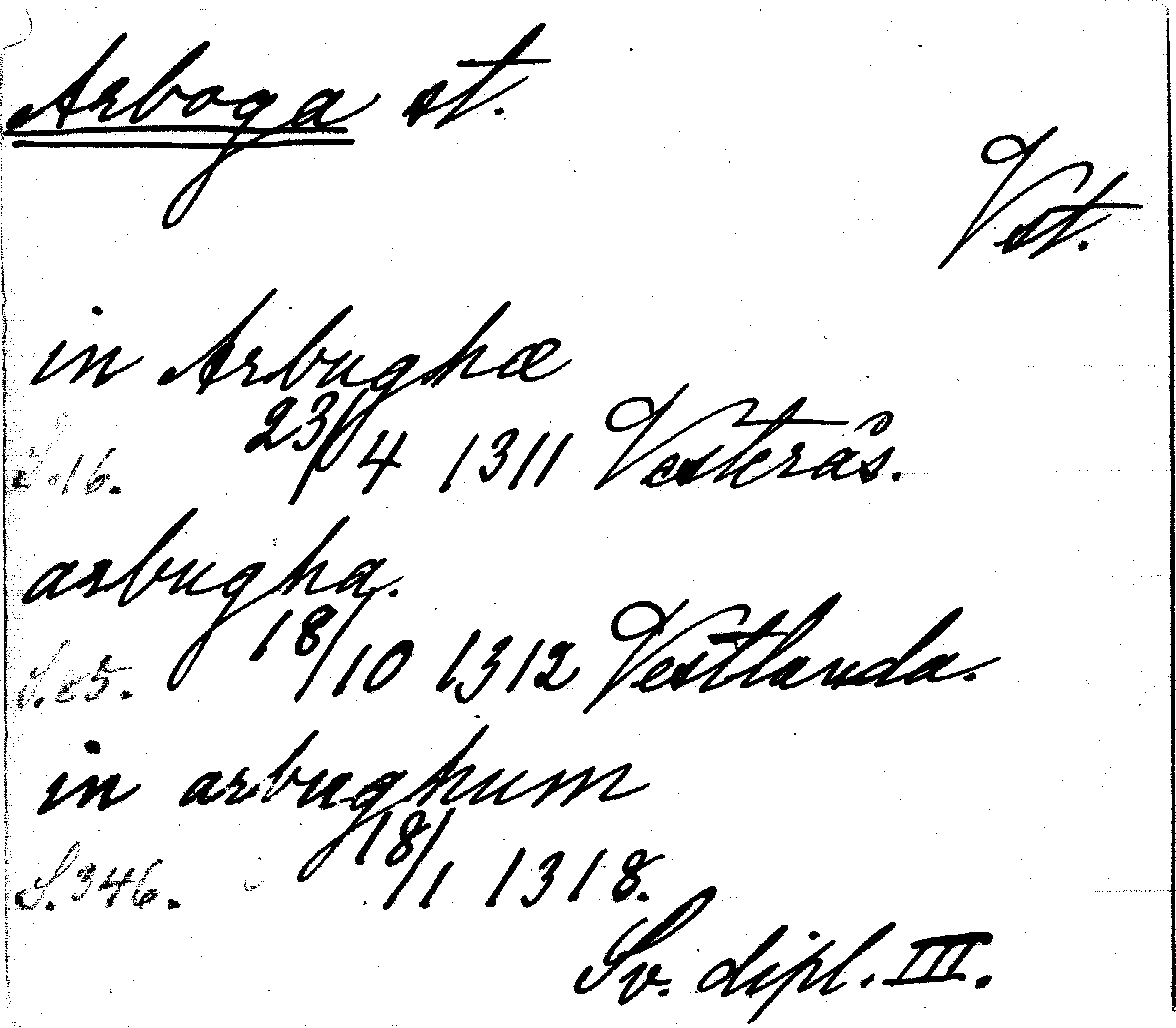 Arboga st.
Vst.
in Arbughæ
S. 16. 23/4 1311 Vesterås.
arbugha.
18/10 1312 Vestlanda.
in arbughum
S. 346. 18/1 1318.
Sv. dipl. III.